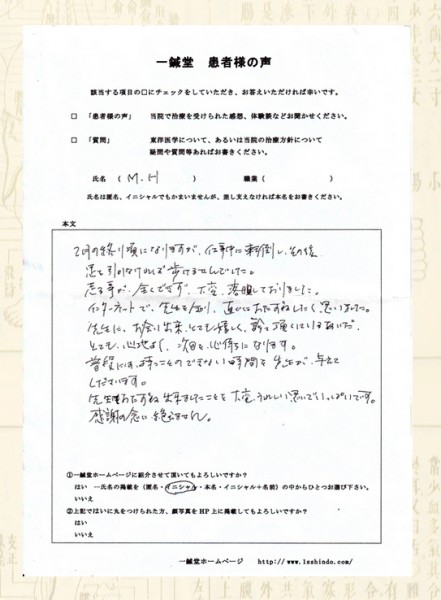 一鍼堂 患者様の声
該当する項目の□にチェックをしていただき、お答えいただければ幸いです。
□ 「患者様の声」 当院で治療を受けられた感想、体験談などお聞かせください。
□ 「質問」 東洋医学について、あるいは当院の治療方針について
疑問や質問等あればお書きください。
氏名 ( M.H ) 職業 ( )
氏名は匿名、イニシャルでもかまいませんが、差し支えなければ本名をお書きください。
本文
2月の終り頃になりますが、仕事中に転倒し、その後
足を引かなければ歩けませんでした。
走る事が、全くできず、大変、落胆しておりました。
インターネットで、先生を知り、直ぐにおたずねしたく思いました。
先生に、お会い出来、とても嬉しく、鍼を頂いているあいだ、
とても、心地よく、次回を心待ちになります。
普段には、持つことのできない時間を先生が、与えて
くださいます。
先生をおたずね出来ましたことを大変、うれしい思いでいっぱいです。
感謝の念に絶えません。
①一鍼堂ホームページに紹介させて頂いてもよろしいですか?
はい ―氏名の掲載を(匿名・イニシャル・本名・イニシャル+名前)の中からひとつお選び下さい。
いいえ
②上記ではいに丸をつけられた方、顔写真をHP上に掲載してもよろしいですか?
はい
いいえ
一鍼堂ホームページ http://www.1sshindo.com/